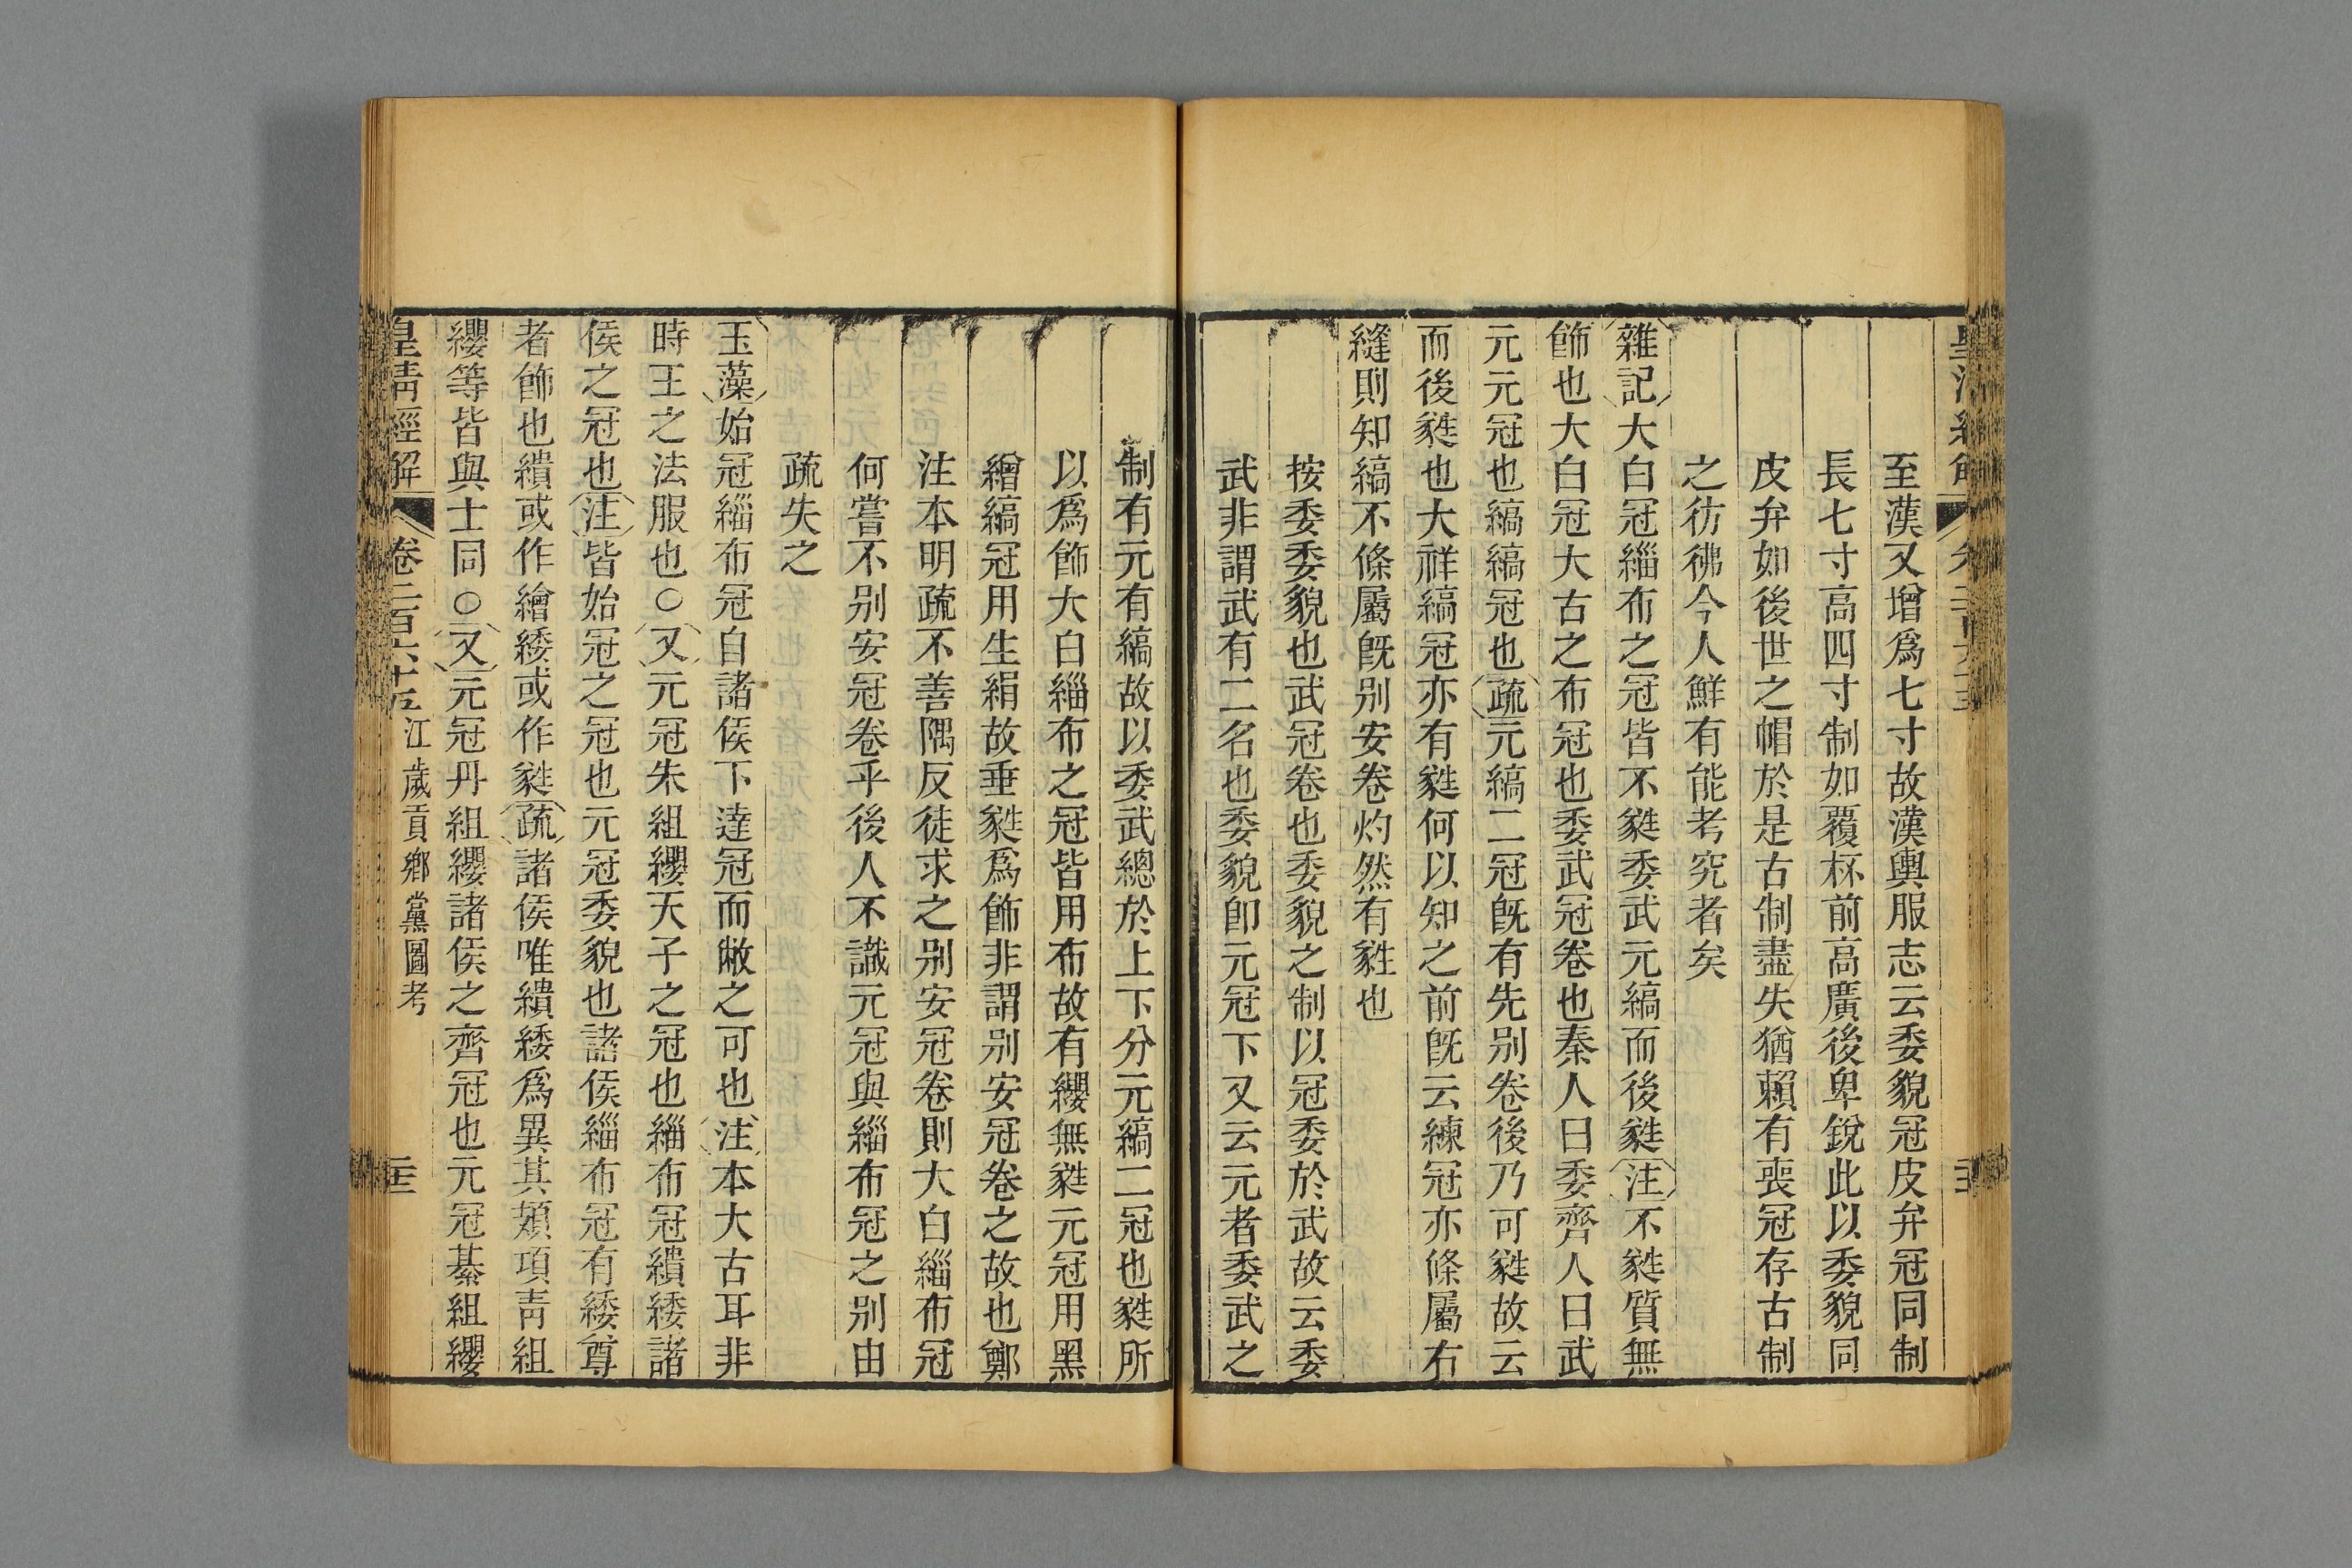 至漢又增爲七寸故漢輿服志云委貌冠皮弁冠同制
長七寸高四寸制如覆杯前高廣後卑銳此以委貌同
皮弁如後世之帽於是古制盡失猶賴有喪冠存古制
之彷彿今人鮮有能考究者矣
雜記大白冠緇布之冠皆不蕤委武元縞而後蕤注不蕤質無
飾也大白冠大古之布冠也委武冠卷也秦人曰委齊人曰武
元元冠也縞縞冠也疏元縞二冠旣有先别卷後乃可蕤故云
而後蕤也大祥縞冠亦有蕤何以知之前旣云練冠亦條屬右
縫則知縞不條屬旣别安卷灼然有蕤也
按委委貌也武冠卷也委貌之制以冠委於武故云委
武非謂武有二名也委貌卽元冠下又云元者委武之
制有元有縞故以委武總於上下分元縞二冠也蕤所
以爲飾大白緇布之冠皆用布故有纓無蕤元冠用黑
繒縞冠用生絹故垂蕤爲飾非謂别安冠卷之故也鄭
注本明疏不善隅反徒求之别安冠卷則大白緇布冠
何嘗不别安冠卷乎後人不識元冠與緇布冠之别由
疏失之
玉藻始冠緇布冠自諸侯下達冠而敝之可也注本大古耳非
時王之法服也○又元冠朱組纓天子之冠也緇布冠繢緌諸
侯之冠也注皆始冠之冠也元冠委貌也諸侯緇布冠有緌尊
者飾也繢或作繪緌或作蕤疏諸侯唯繢緌爲異其頍項靑組
纓等皆與士同○又元冠丹組纓諸侯之齊冠也元冠綦組纓
皇清經解 卷二百六十五 江歲貢鄉黨圖考